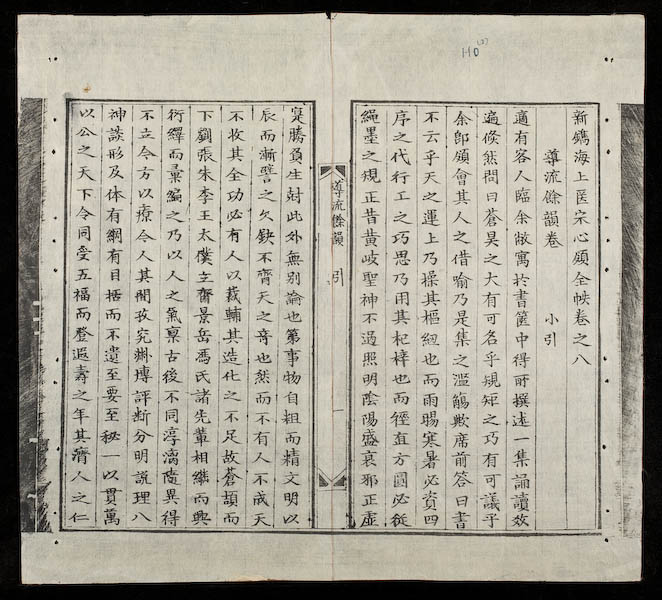 110
新鐫海上医宗心領全帙卷之八
導流餘韻卷 小引
適有客人臨余敝寓於書篋中得所撰述一集誦讀效
遍倐然問曰蒼昊之大有可名乎規矩之巧有可議乎
余卽領會其人之借喻乃是集之濫觴歟席前答曰書
不云乎天之運上乃操其樞紐也而雨暘寒暑必資四
序之代行工之巧思乃用其杞梓也而徑直方圓必從
繩墨之規正昔黃岐聖神不過照明陰陽盛衰邪正虛
導流餘韻 引 一
寔勝負生尅此外無別論也第事物自粗而精文明以
辰而漸譬之欠缺不齊天之奇也然而不有人不成天
不收其全功必有人以裁輔其造化之不足故蒼頡而
下劉張朱李王太僕立齋景岳馮氏諸先輩相繼而興
衍繹而彙編之乃以人之氣禀古後不同淳漓隨異得
不立今方以療今人其間攷究淵博評断分明説理入
神談形及体有綱有目括而不遺至要至秘一以貫萬
以公之天下令同受五福而登遐壽之年其濟人之仁